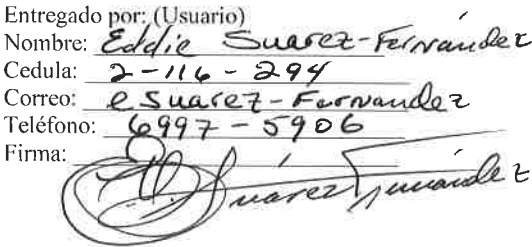 Entregado por: (Usuario)
Nombre: Eddie Suarez-Fernández
Cedula: 2-116-294
Correo: e Suarez-Fernandez
Teléfono: 6997-5906
Firma:
Suárez Fernández